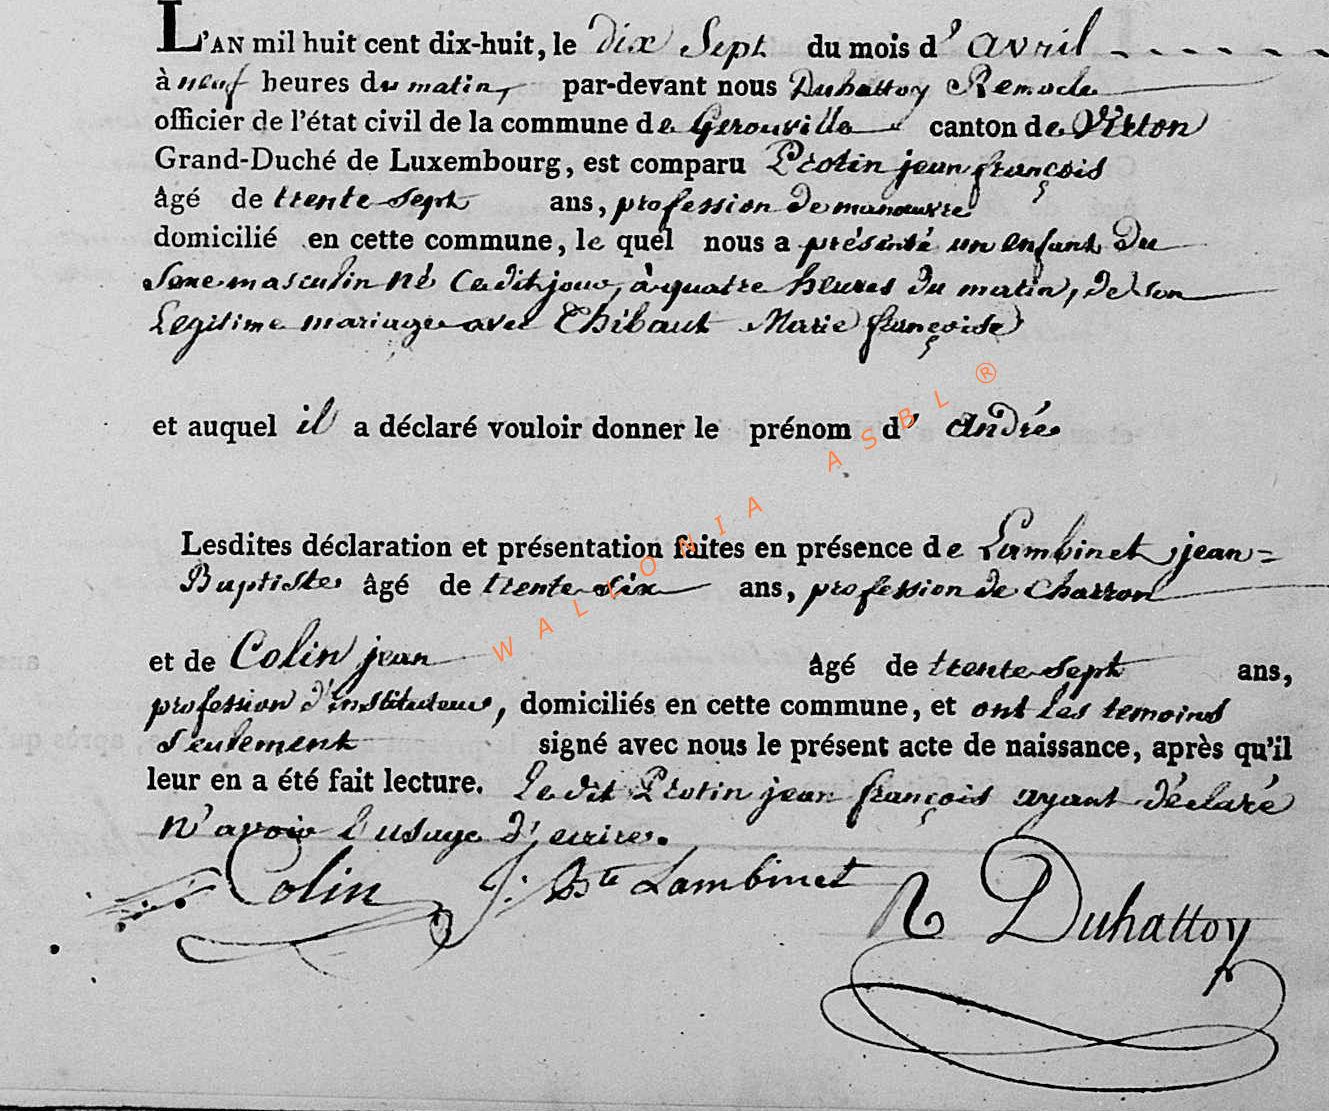 L'AN mil huit cent dix-huit, le dix Sept du mois d'avril
à neuf heures du matin, par-devant nous Duhattoy Remacle
officier de l'état civil de la commune de Gerouville canton de Virton
Grand-Duché de Luxembourg, est comparu Protin jean françois
âgé de trente Sept ans, profession de manœuvre
domicilié en cette commune, le quel nous a présenté un enfant du
Sexe masculin né Cedit jour, à quatre heures du matin, de son
Legitime mariage avec Thibaut Marie françoise
et auquel il a déclaré vouloir donner le prénom d'André
WALLONIA ASBL ®
Lesdites déclaration et présentation faites en présence de Lambinet jean=
Baptiste âgé de trente Six ans, profession de Charron
et de Colin jean âgé de trente Sept ans,
profession d'instituteur, domiciliés en cette commune, et ont les temoins
Seulement signé avec nous le présent acte de naissance, après qu'il
leur en a été fait lecture. Ledit Protin jean françois ayant déclaré
n'avoir l'usage d'ecrire.
Colin J: Bte Lambinet R Duhattoy